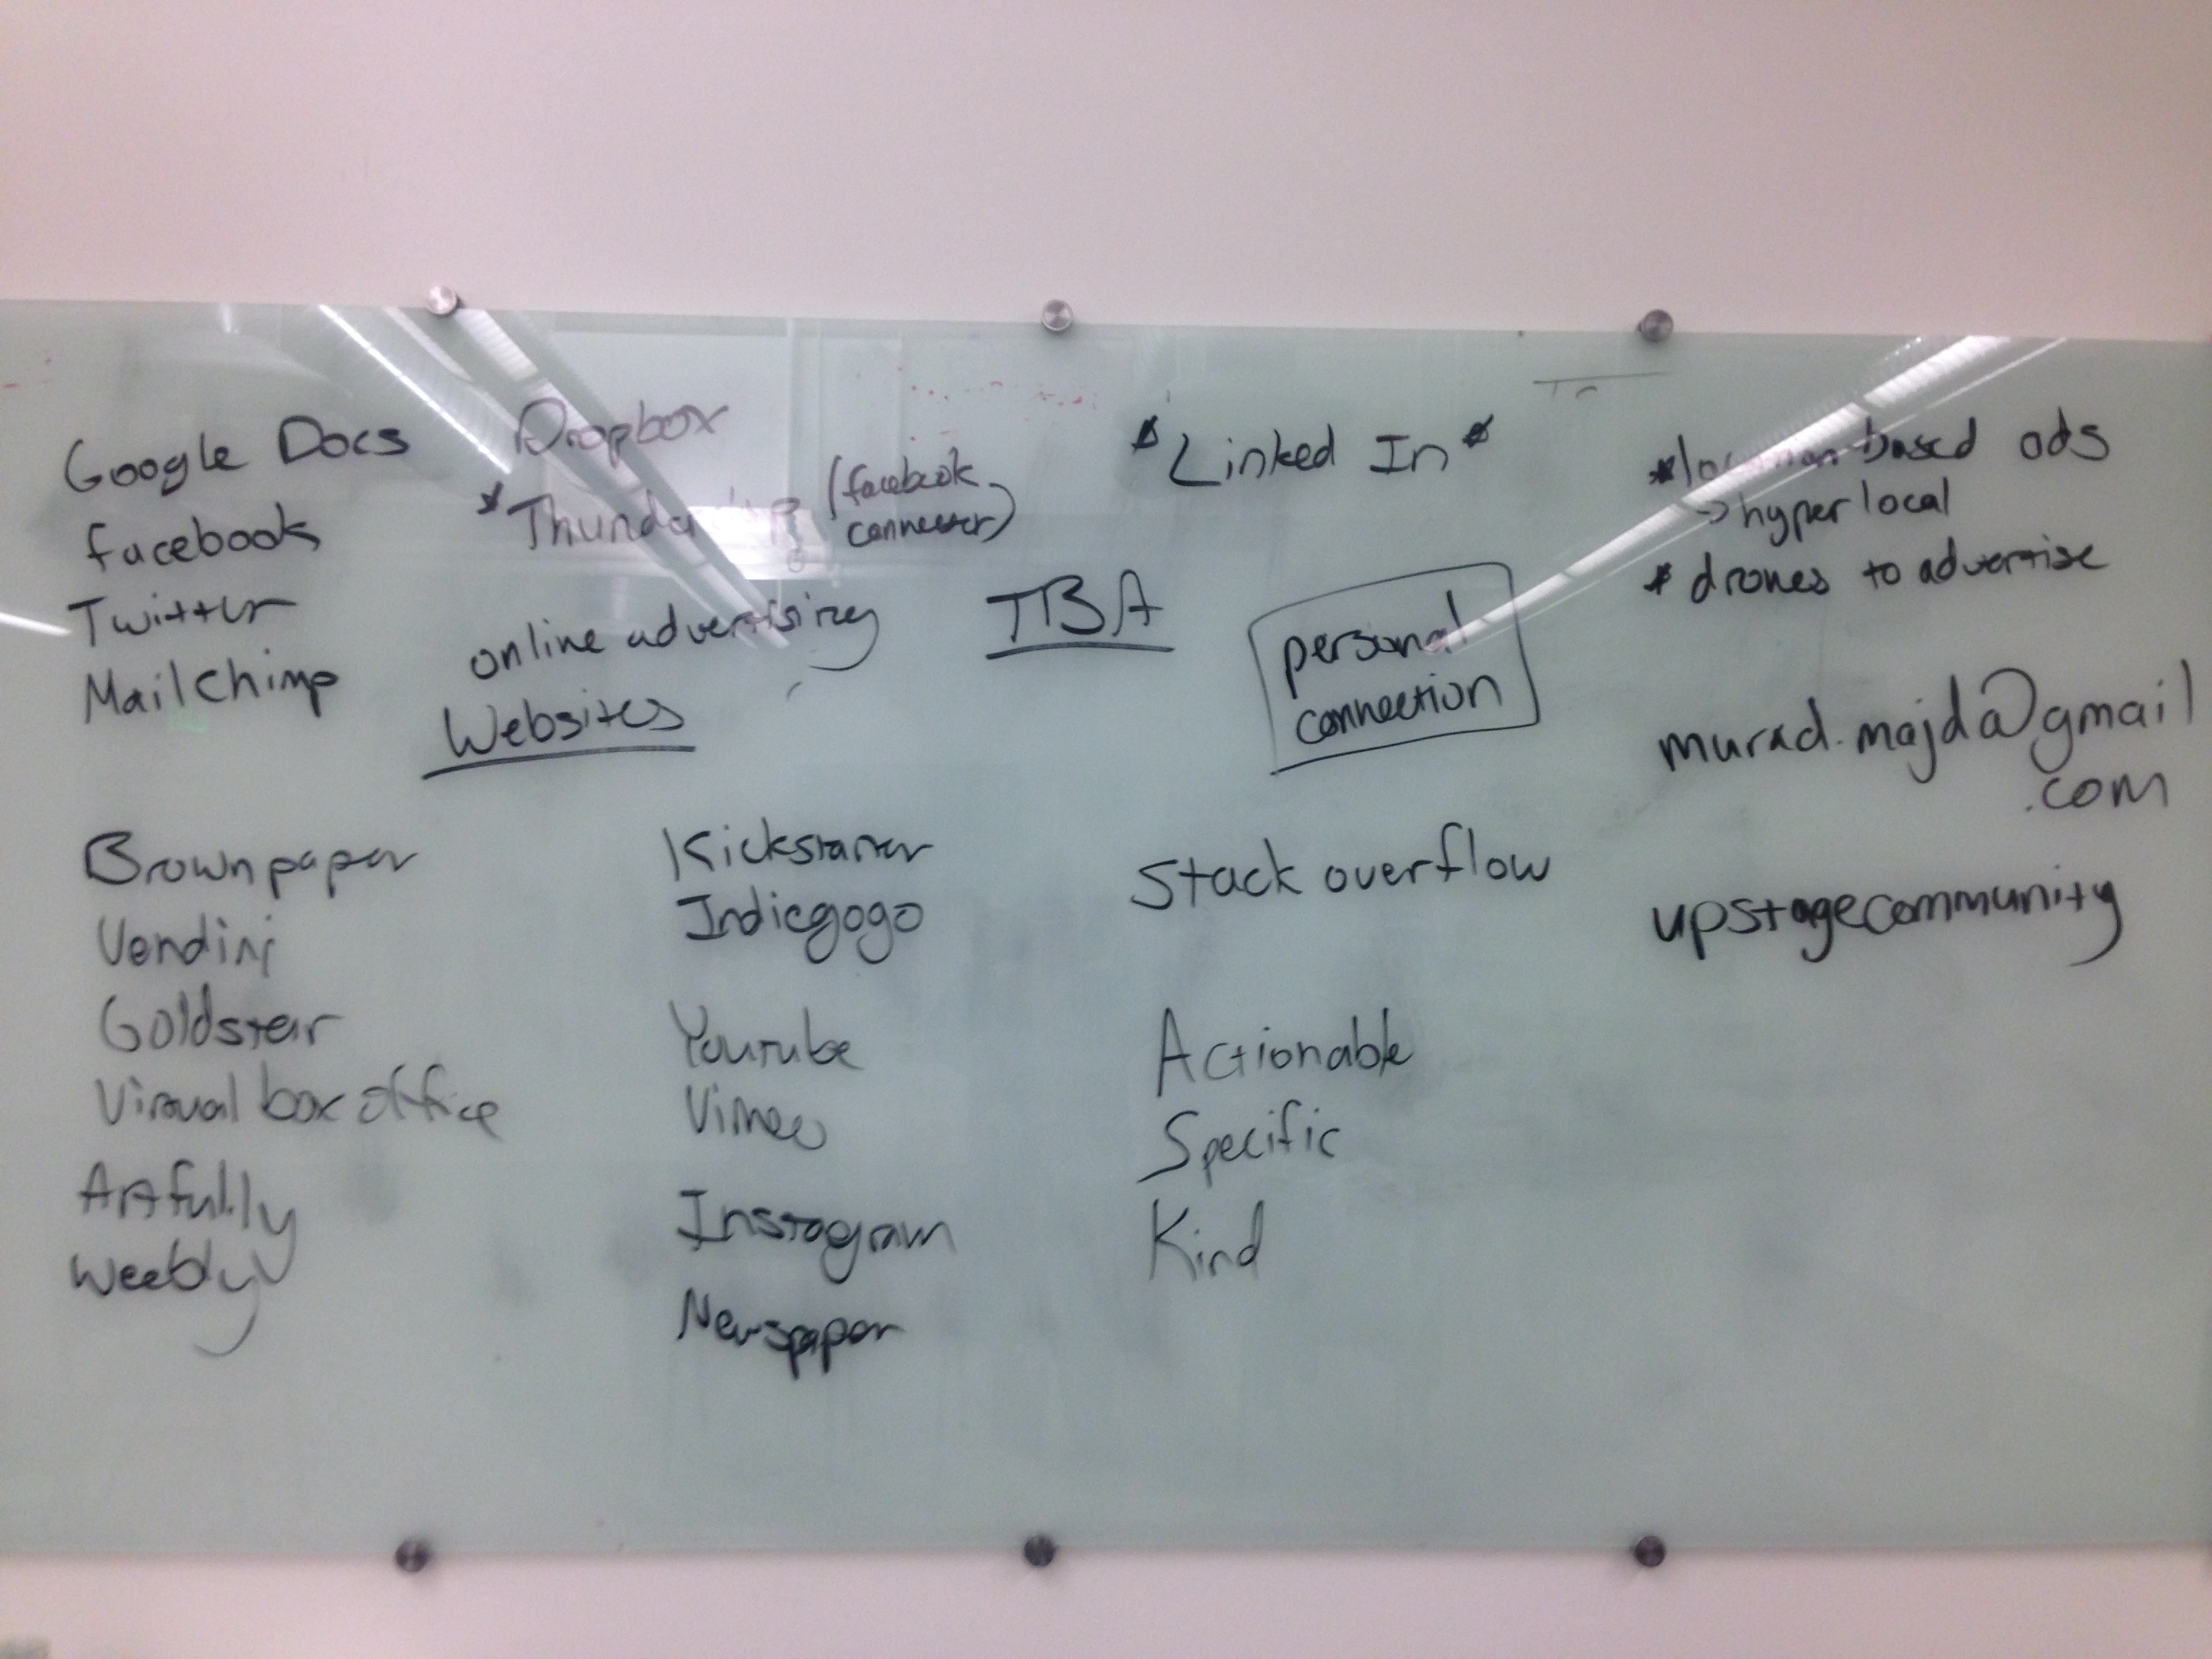 Google Docs
facebook
Twitter
Mailchimp
Dropbox
* (facebook
connector)
online advertising
Websites
TBA
*Linked In*
personal
connection
*location based ads
→ hyper local
* drones to advertise
murad.majda@gmail
.com
Brownpaper
Vendini
Goldstar
Virtual box office
Artful.ly
weebly
Kickstarter
Indiegogo
Youtube
Vimeo
Instagram
Newspaper
Stack overflow
Actionable
Specific
Kind
upstagecommunity